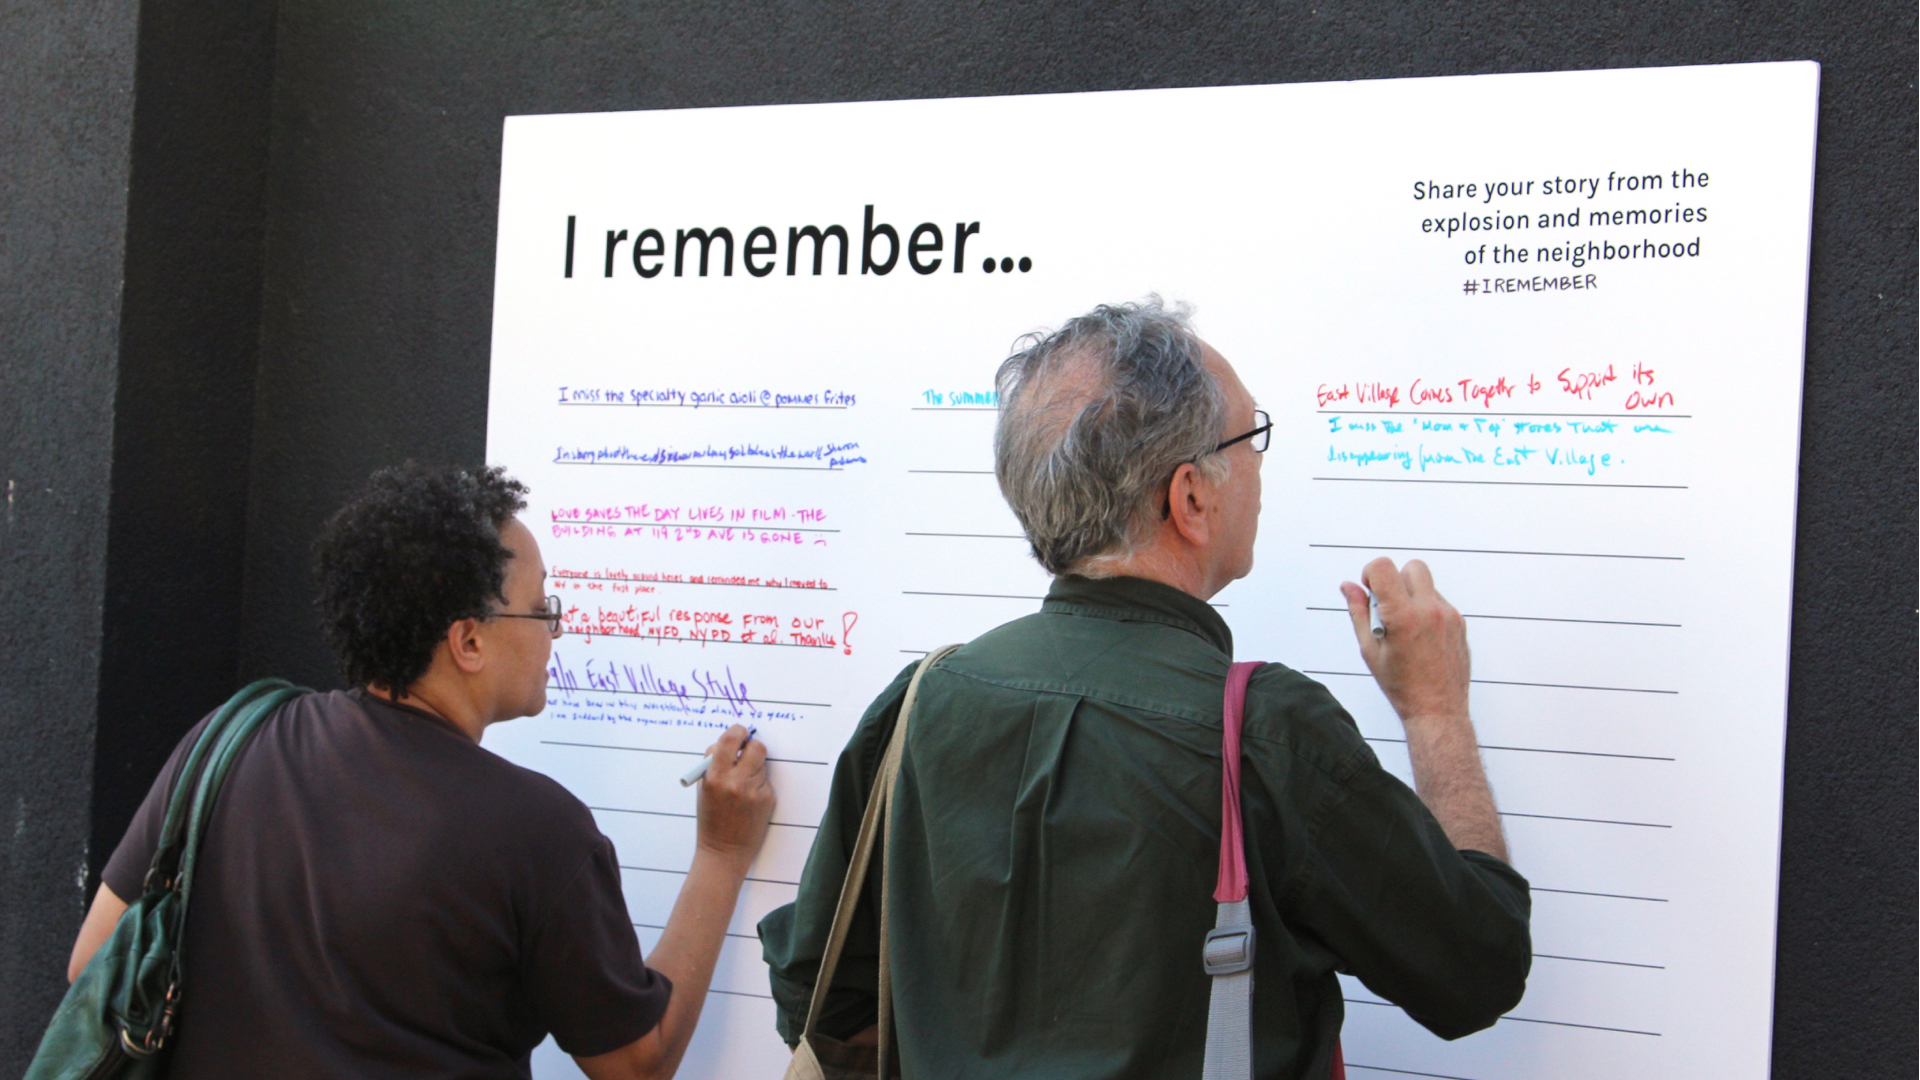 I remember...
Share your story from the
explosion and memories
of the neighborhood
#IREMEMBER
I miss the specialty garlic aioli @ pommes frites
Sharon
LOVE SAVES THE DAY LIVES IN FILM - THE
BUILDING AT 119 2ND AVE IS GONE :(
Everyone is lovely around here and reminded me why I moved to
NY in the first place.
at a beautiful response from our
neighborhood, NYFD, NYPD et al. Thanks!
9/11 East Village Style
have been in this neighborhood almost 40 years.
I am saddened by the Real Estate
The summer
East Village Comes Together to Support its
own
I miss the "Mom & Pop" stores that are
disappearing from the East Village.